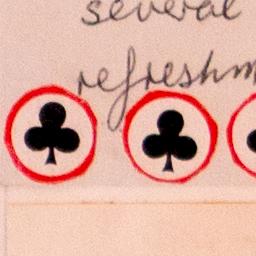 several
refreshm